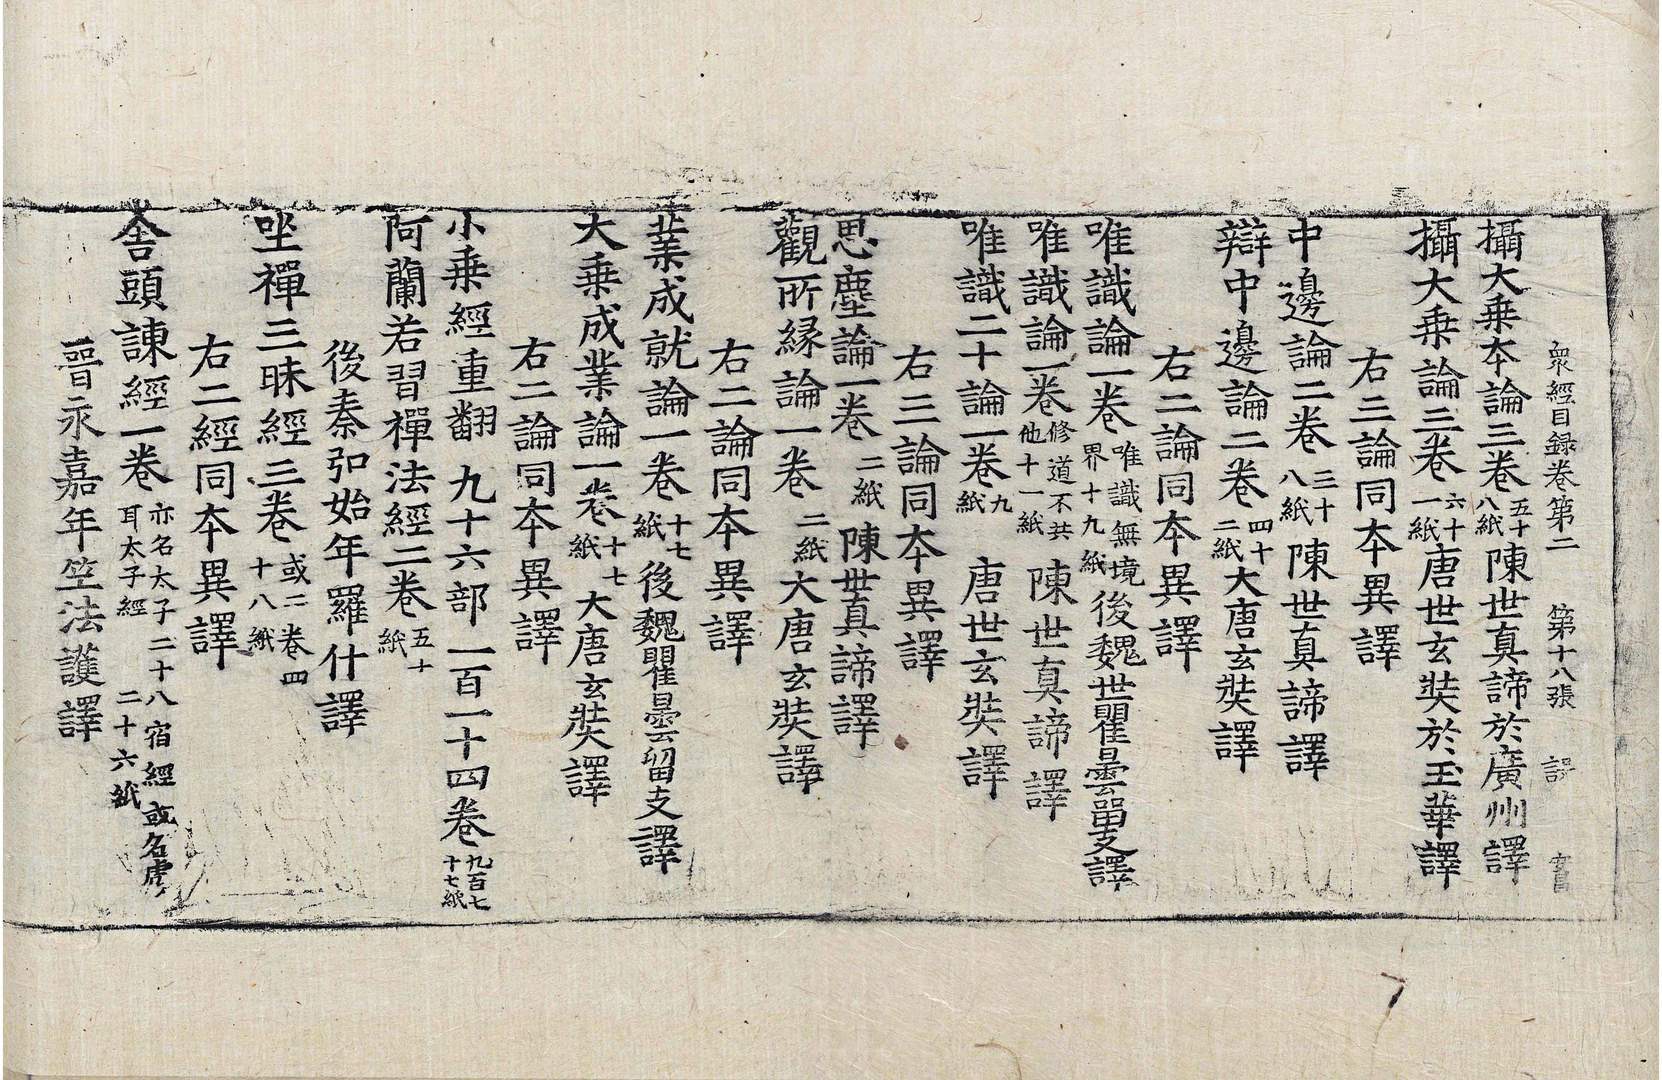 衆經目録卷第二 第十八張
攝大乗本論三卷五十八紙陳世真諦於廣州譯
攝大乗論三卷六十一紙唐世玄奘於玉華譯
右三論同本異譯
中邊論二卷三十八紙陳世真諦譯
辯中邊論二卷四十二紙大唐玄奘譯
右二論同本異譯
唯識論一卷唯識無境界十九紙後魏世瞿曇留支譯
唯識論一卷修道不共他十一紙陳世真諦譯
唯識二十論一卷九紙唐世玄奘譯
右三論同本異譯
思塵論一卷二紙陳世真諦譯
觀所緣論一卷二紙大唐玄奘譯
右二論同本異譯
業成就論一卷十七紙後魏瞿曇留支譯
大乗成業論一卷十七紙大唐玄奘譯
右二論同本異譯
小乗經重翻九十六部一百一十四卷九百七十七紙
阿蘭若習禪法經二卷五十紙
後秦弘始年羅什譯
坐禪三昧經三卷或二卷四十八紙
右二經同本異譯
舍頭諫經一卷亦名太子二十八宿經或名虎耳太子經二十六紙
晉永嘉年竺法護譯